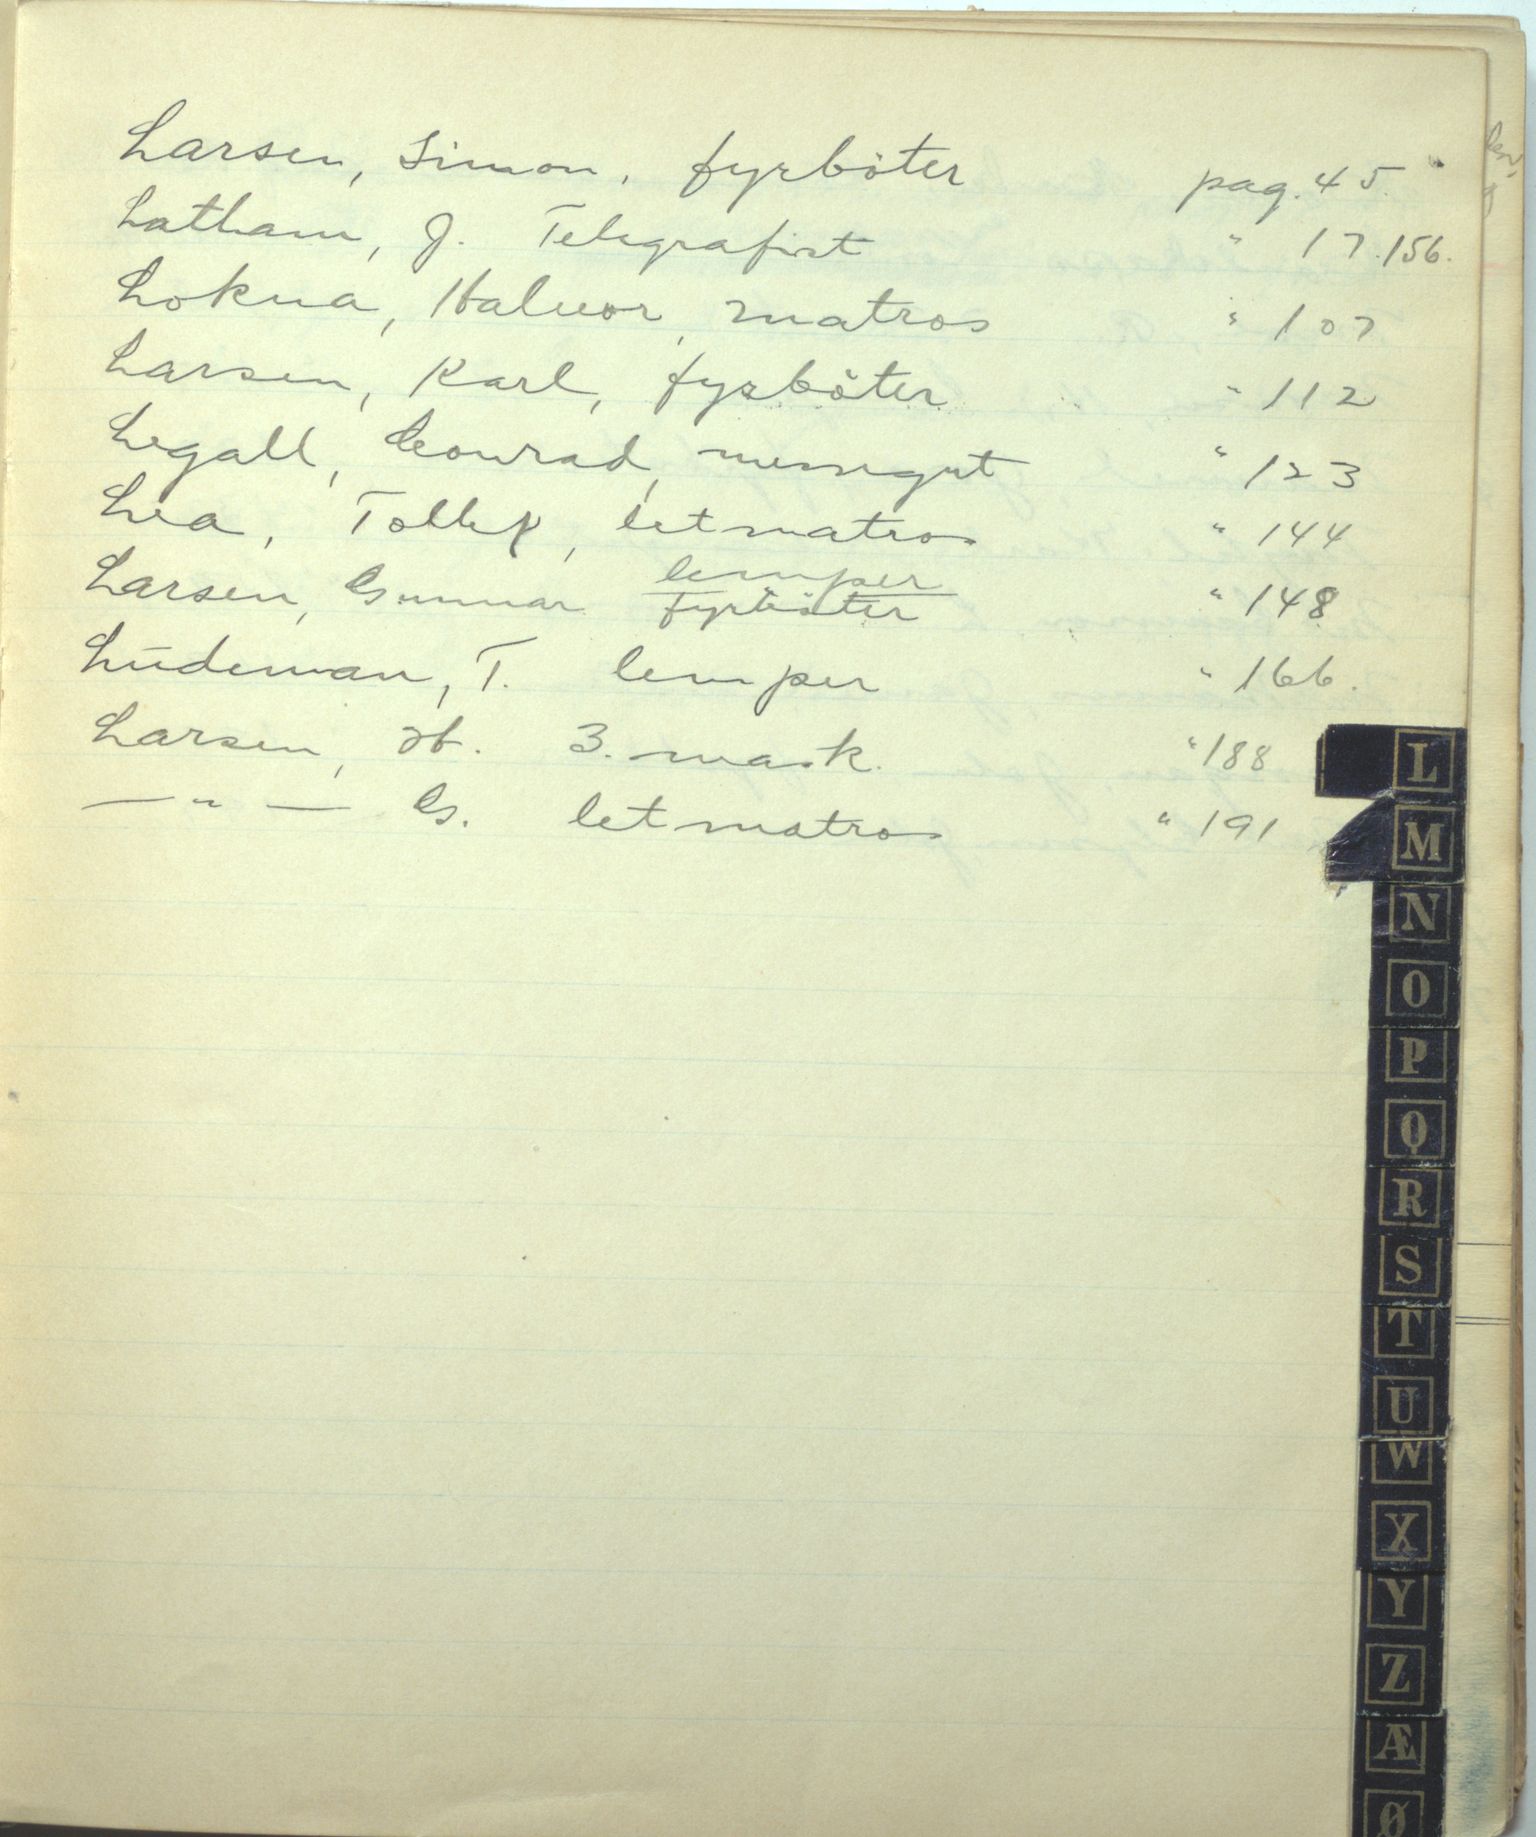 Larsen, Simon, fyrböter pag. 45
Latham, J. Telegrafist " 17.156.
Lokna, Halvor, matros " 107
Larsen, Karl, fyrböter " 112
Legall, Conrad, messegut " 123
Lea, Tollef, letmatros " 144
lemper
Larsen, Gunnar fyrböter " 148
Lüdeman, T. lemper " 166.
Larsen, H. 3. mask. " 188
— " — G. letmatros " 191
L
M
N
O
P
Q
R
S
T
U
W
X
Y
Z
Æ
Ø